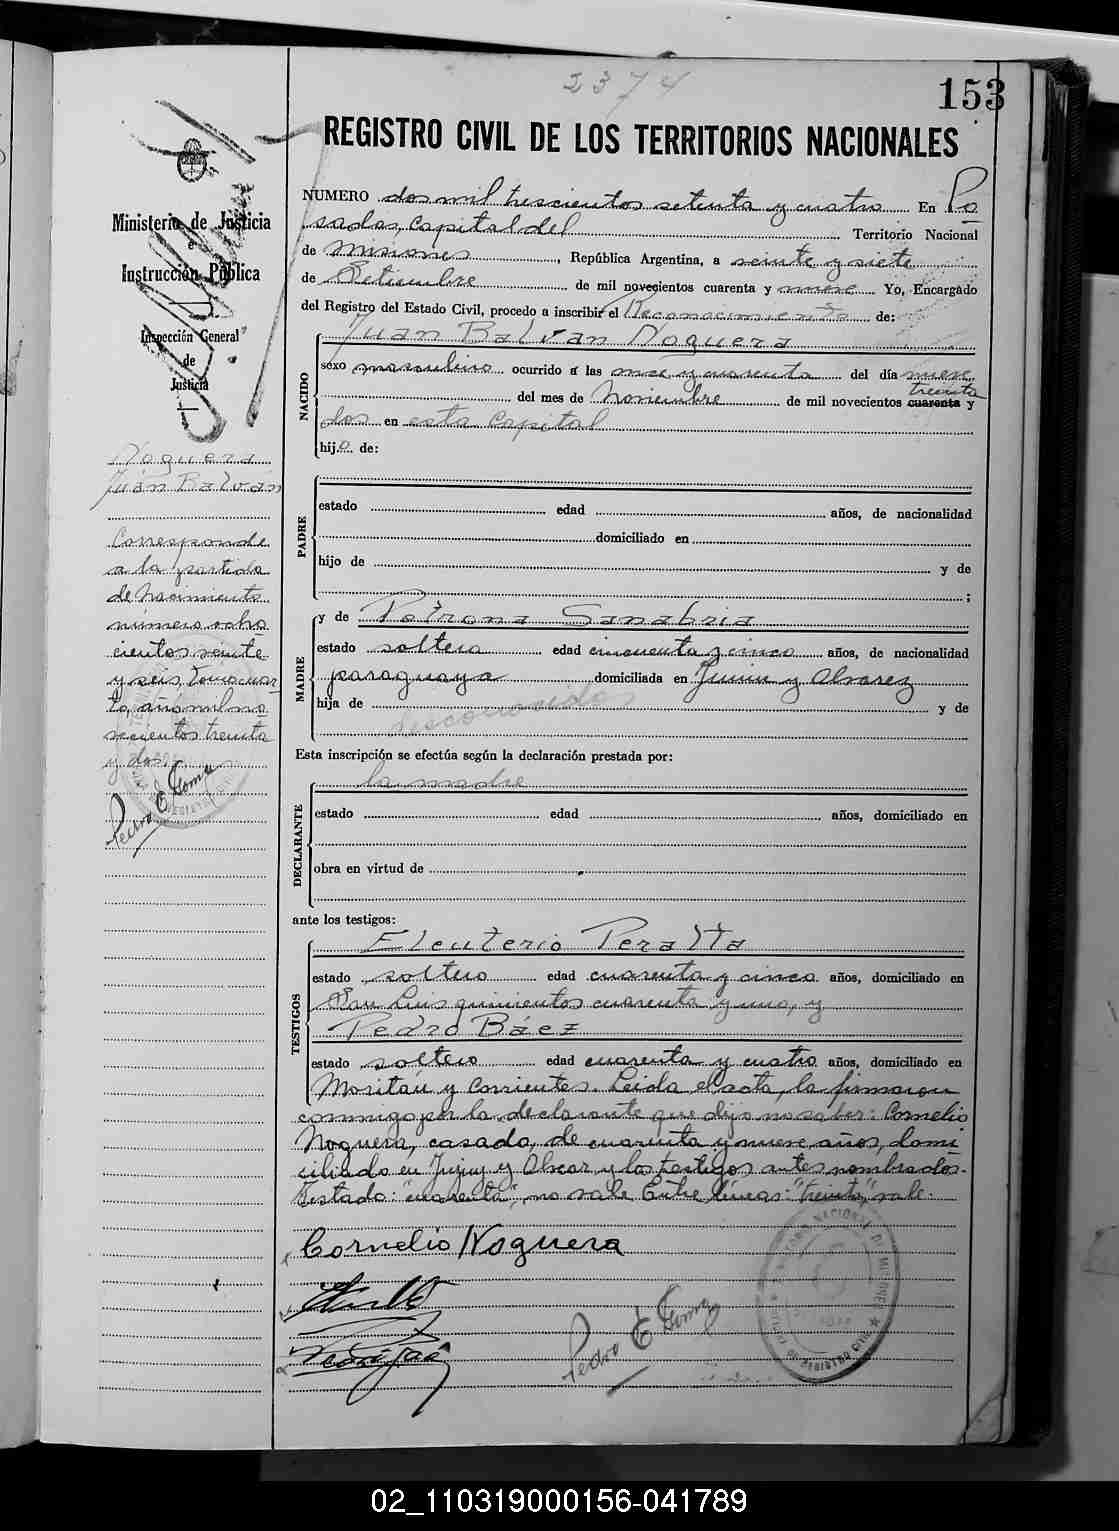 2374
153
REGISTRO CIVIL DE LOS TERRITORIOS NACIONALES
NUMERO dos mil trescientos setenta y cuatro En Po
sadas, Capital del Territorio Nacional
de Misiones, República Argentina, a veinte y siete
de Setiembre de mil novecientos cuarenta y nueve Yo, Encargado
del Registro del Estado Civil, procedo a inscribir el Reconocimiento de:
NACIDO
Juan Balvan Noguera
sexo masculino ocurrido a las once y cuarenta del día nueve
treinta
del mes de Noviembre de mil novecientos cuarenta y
dos en esta Capital
hijo de:
PADRE
estado edad años, de nacionalidad
domiciliado en
hijo de y de
;
MADRE
y de Petrona Sanabria
estado soltera edad cincuenta y cinco años, de nacionalidad
paraguaya domiciliada en Junin y Alvarez
hija de y de
desconocidos
Esta inscripción se efectúa según la declaración prestada por:
DECLARANTE
la madre
estado edad años, domiciliado en
obra en virtud de
ante los testigos:
TESTIGOS
Eleuterio Peralta
estado soltero edad cuarenta y cinco años, domiciliado en
San Luis quinientos cuarenta y uno, y
Pedro Báez
estado soltero edad cuarenta y cuatro años, domiciliado en
y Corrientes. Leida el acta, la firmaron
conmigo por la declarante que dijo no saber: Cornelio
Noguera, casado, de cuarenta y nueve años, domi
ciliado en y y los testigos antes nombrados.
Testado: "cuarenta", no vale. Entre líneas: "treinta", vale.
Cornelio Noguera
Pedro E Gomez
Ministerio de Justicia
e
Instrucción Pública
Inspección General
de
Justicia
Noguera
Juan Balván
Corresponde
a la partida
de nacimiento
número ocho
cientos veinte
y seis, tomo cuar
to, año mil no
vecientos treinta
y dos.
Pedro E Gomez
02_110319000156-041789